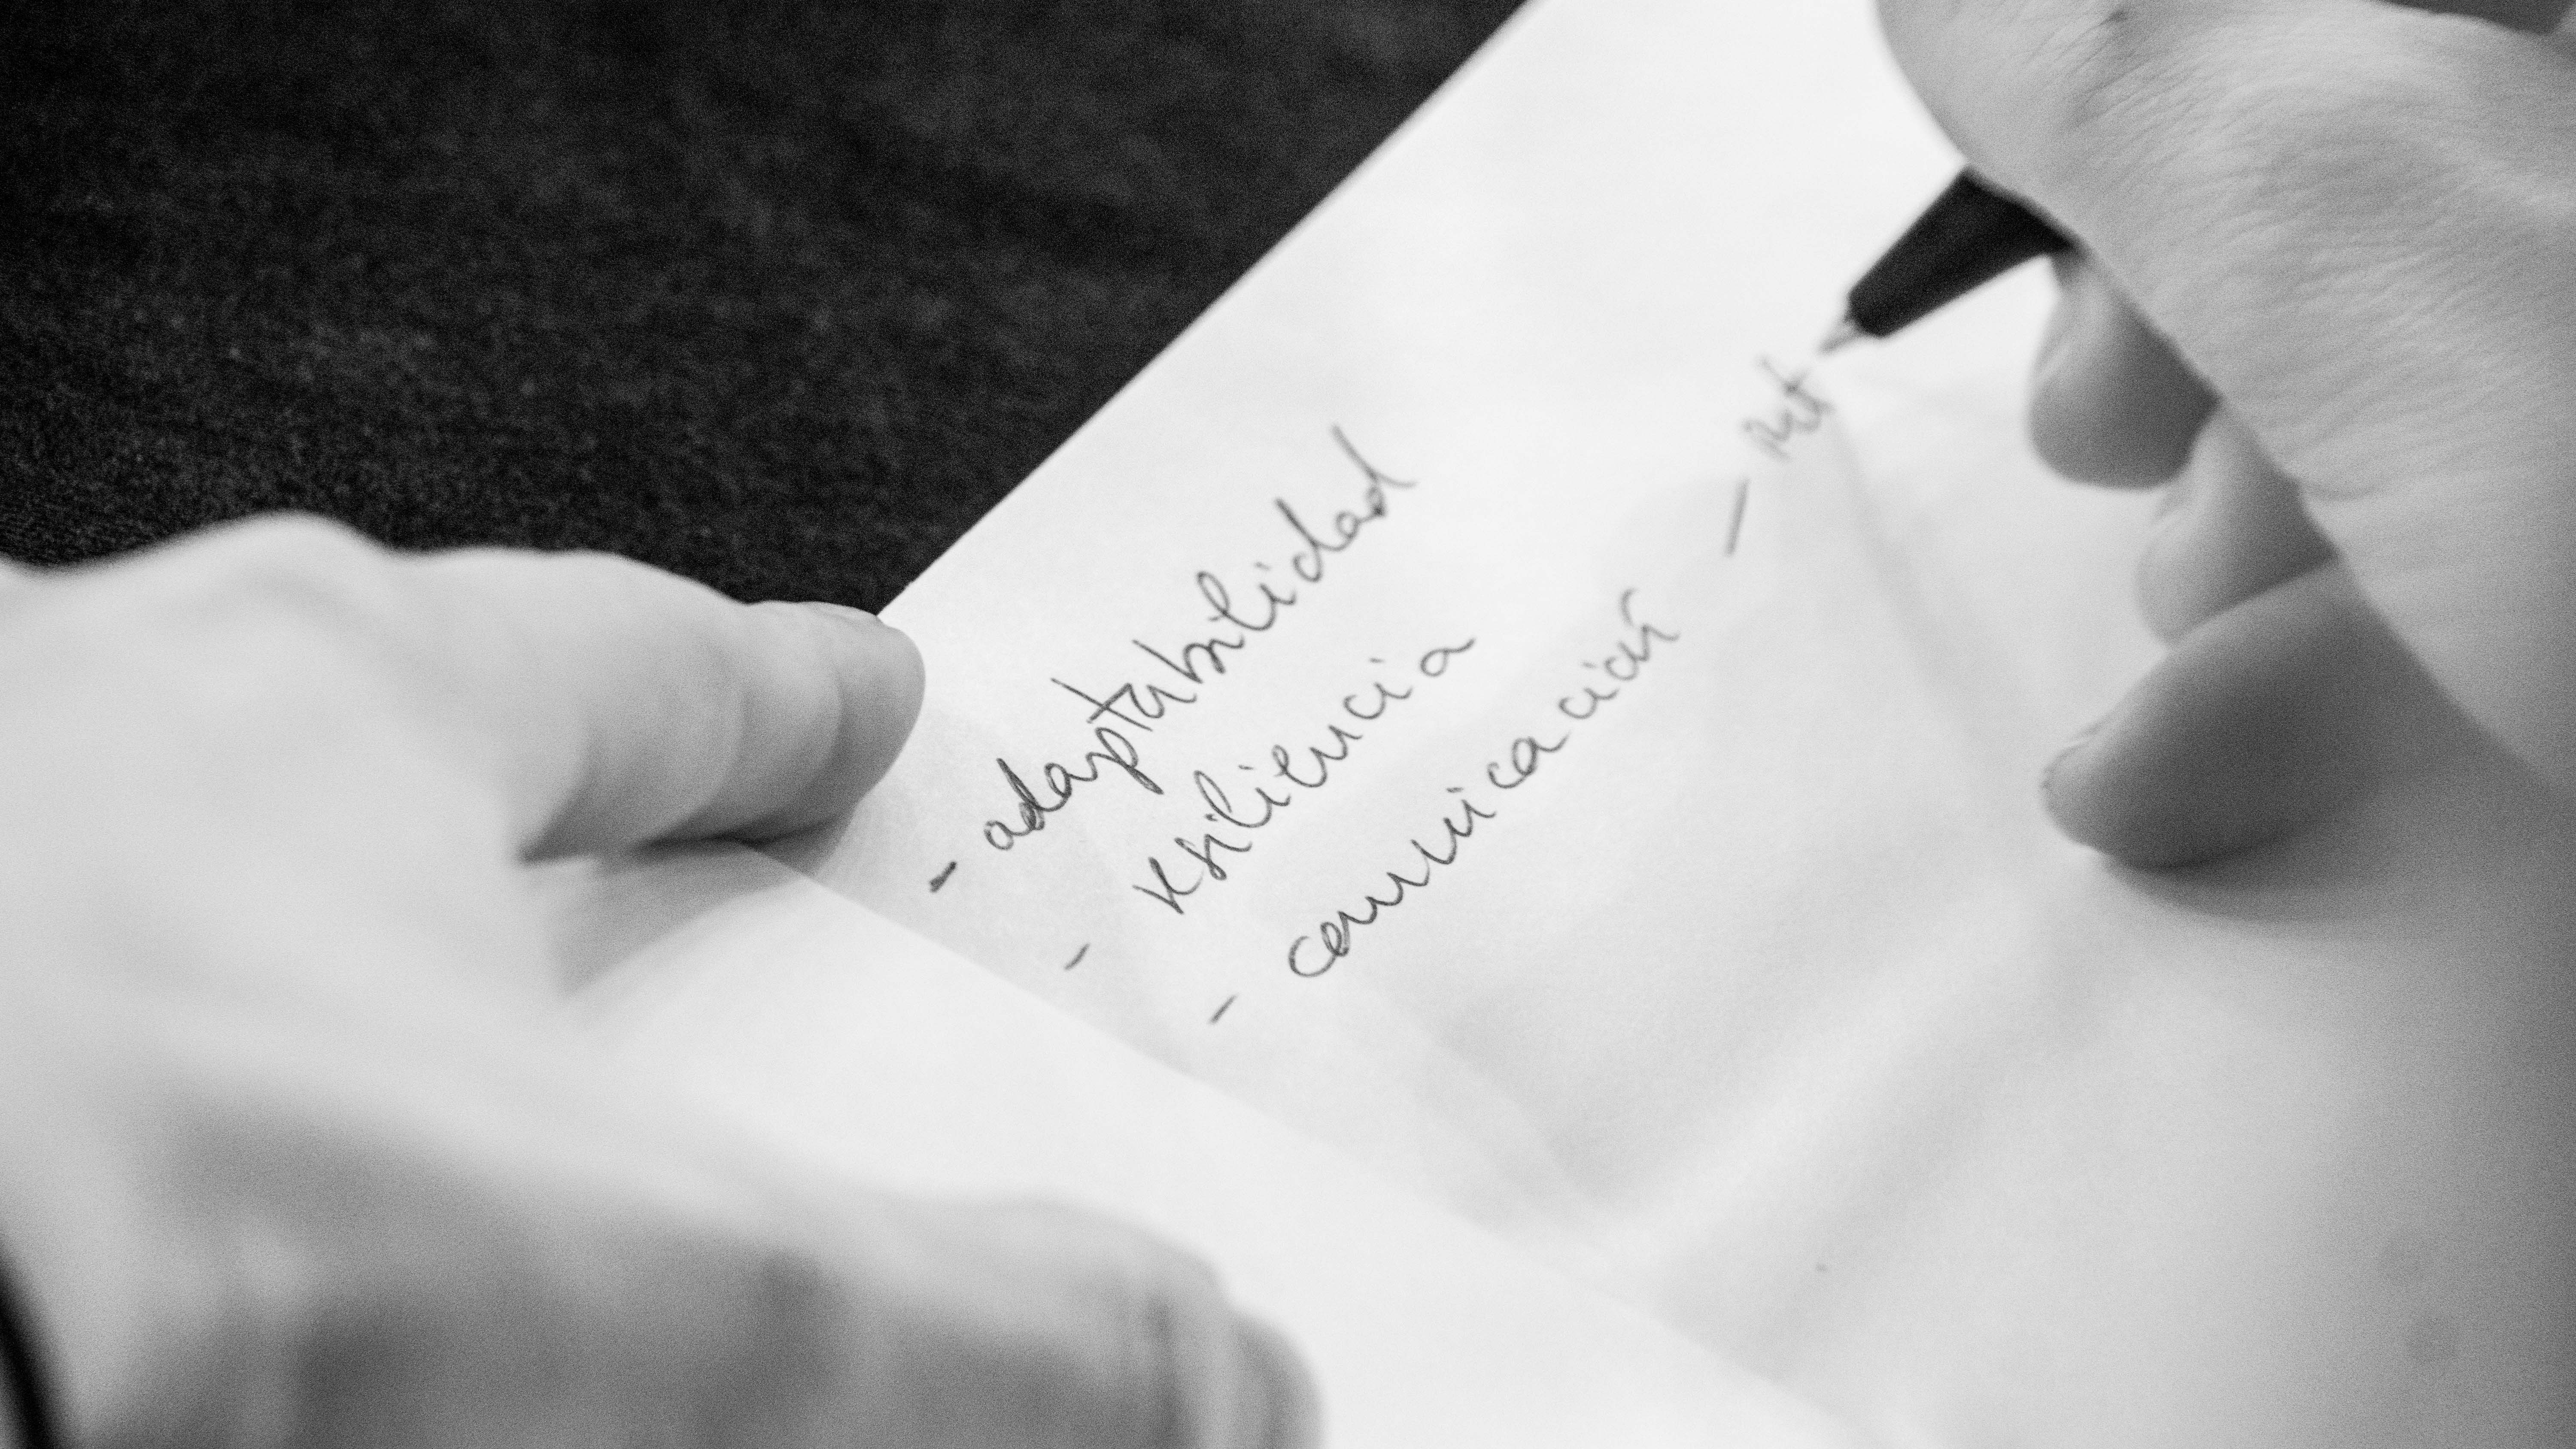 - adaptabilidad
- resiliencia
- comunicación -